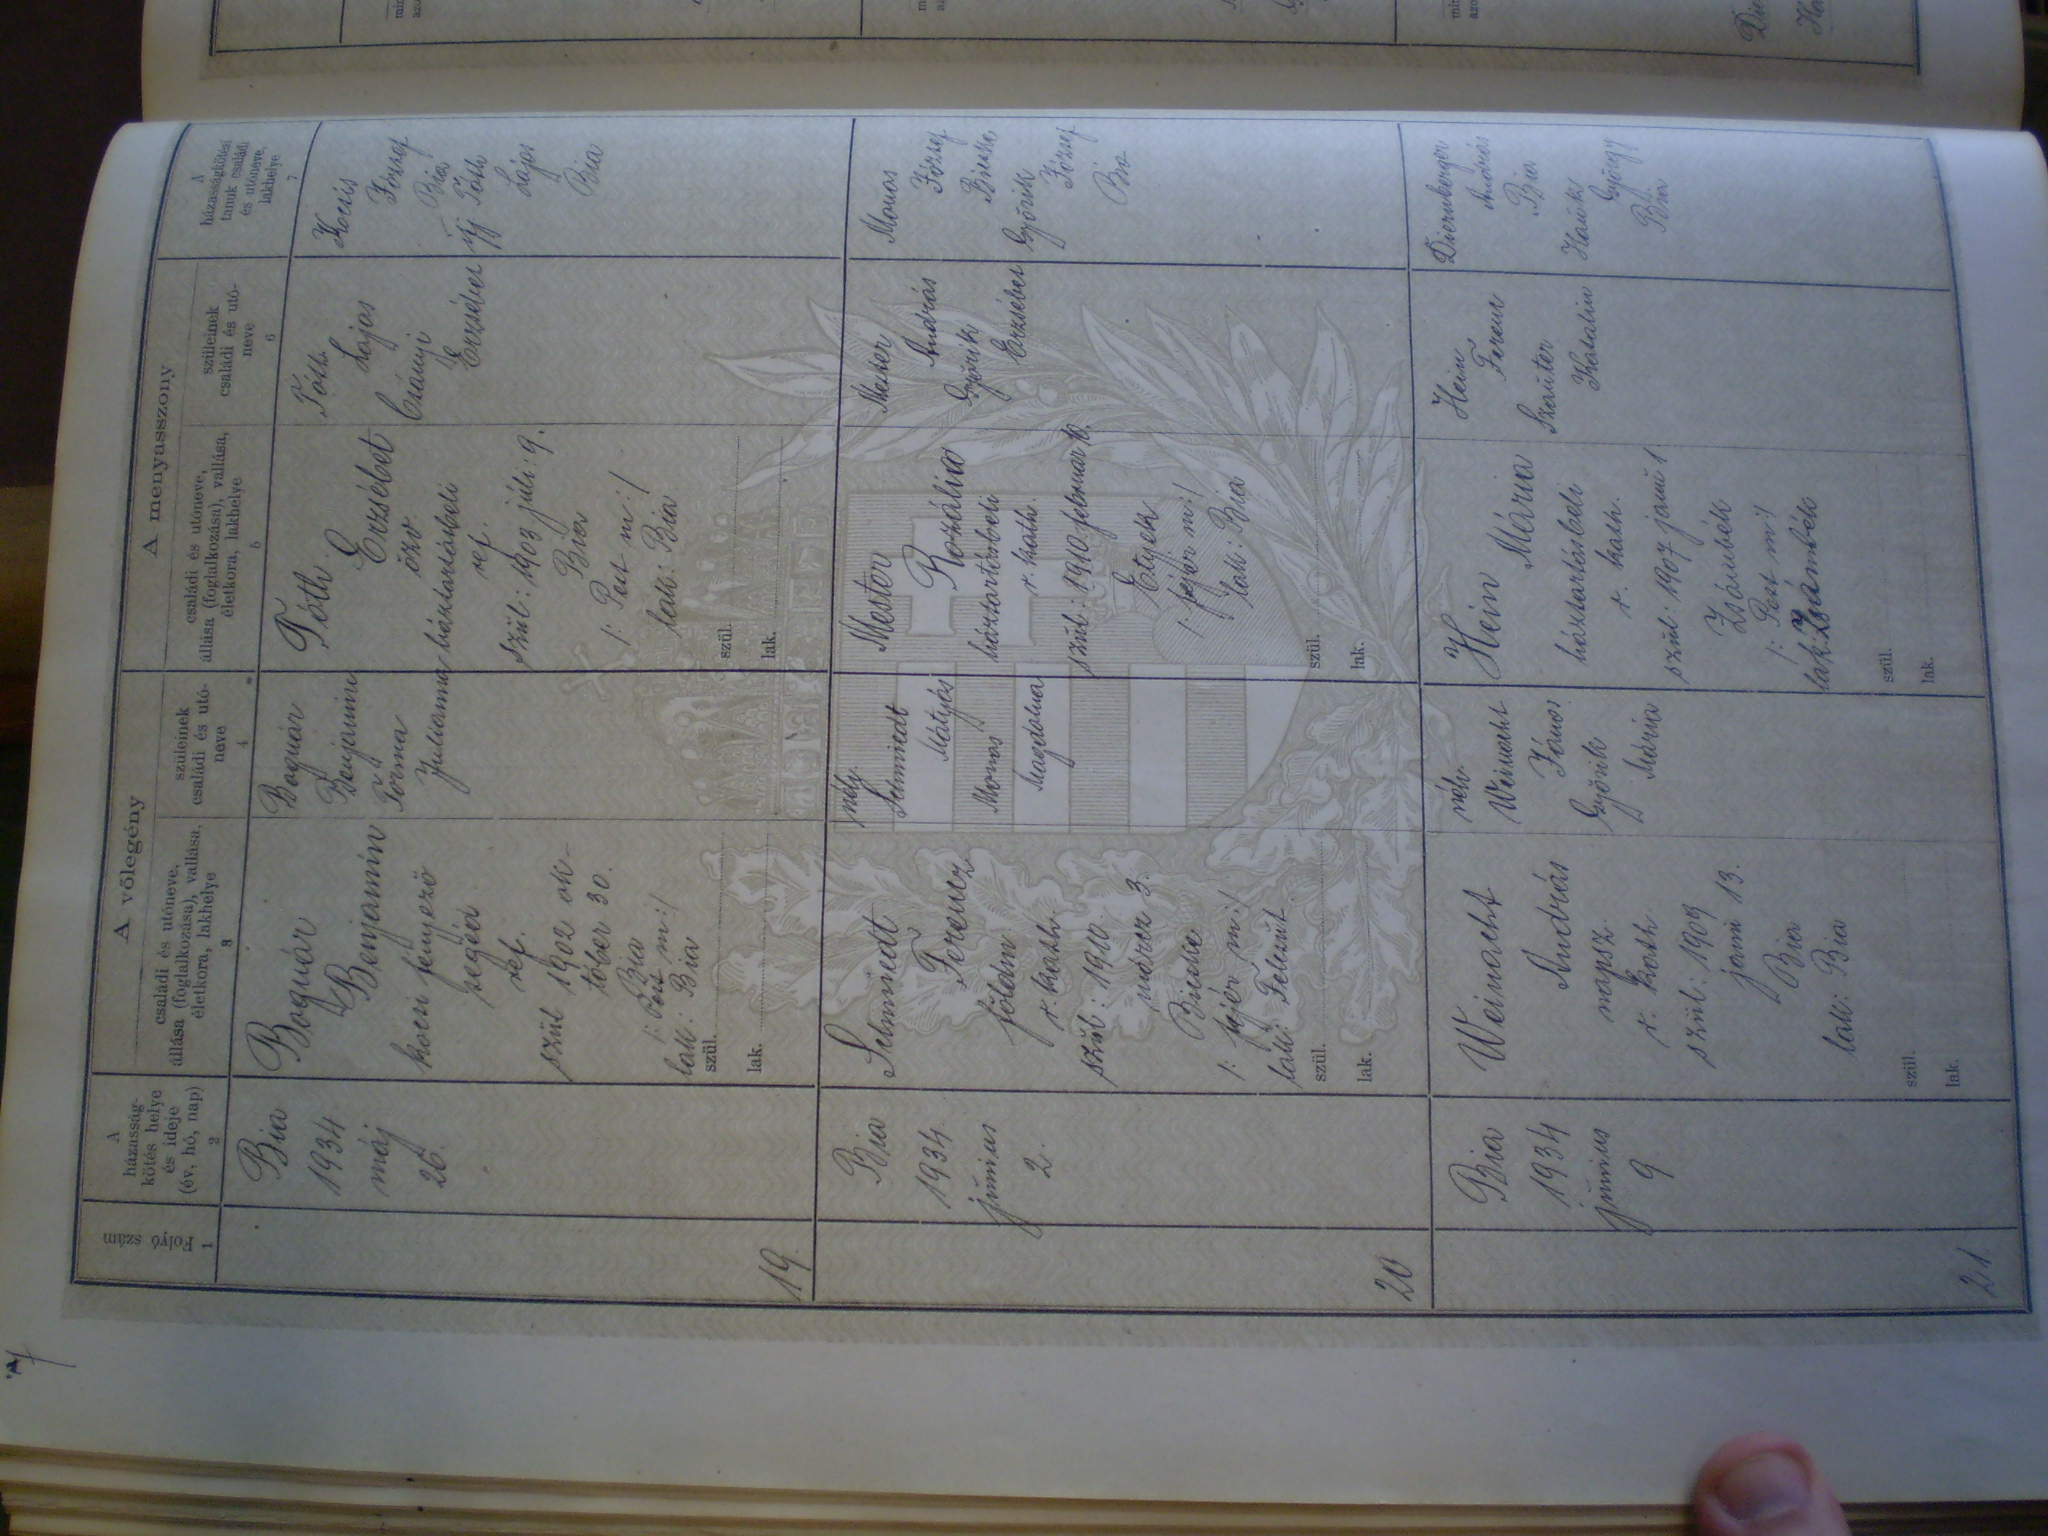 A völegény
A menyasszony
Folyó
szám
1
A
házasság-
kötés helye
és ideje
(év, hó, nap)
2
családi és utóneve,
állása (foglalkozása), vallása,
életkora, lakhelye
3
szüleinek
családi és utó-
neve
4
családi és utóneve,
állása (foglalkozása), vallása,
életkora, lakhelye
5
szüleinek
családi és utó-
neve
6
A
házasságkötési
tanuk családi
és utóneve,
lakhelye
7
19.
Bia
1934
máj
26.
Bognár
Benjamin
kocsi fényező
segéd
ref.
szül 1902 ok-
tóber 30.
Bia
/: Pest m:/
lak: Bia
szül.
lak.
Bognár
Benjamin
Torma
Julianna
Tóth
Erzsébet
özv.
háztartásbeli
ref.
szül: 1903 júli: 9.
Bia
/: Pest m:/
lak: Bia
szül.
lak.
Tóth
Lajos
Csányi
Erzsébet
Kocsis
József
Bia
ifj Tóth
Lajos
Bia
20
Bia
1934.
június
2.
Schmiedt
Ferencz
földm.
r. kath.
szül: 1910.
3.
Bicske
/: fejér m:/
lak: Felcsút
szül.
lak.
néh.
Schmiedt
Mátyás
Monos
Magdolna
Mester
Rozália
háztartásbeli
r. kath.
szül: 1910 február 18.
Etyek
/: fejér m:/
lak: Bia
szül.
lak.
Mester
András
Győrik
Erzsébet
Monos
József
Bicske
Győrik
József
Bia
21
Bia
1934
június
9
Weinacht
András
napsz.
r. kath.
szül: 1909
janu 13.
Bia
lak: Bia
szül.
lak.
néh.
Weinacht
János
Győrik
Mária
Hein
Mária
háztartásbeli
r. kath.
szül: 1907 janu 1
Zsámbék
/: Pest m:/
lak: Zsámbék
szül.
lak.
Hein
Ferenc
Szauter
Katalin
Diernberger
András
Bia
Hauck
György
Bia